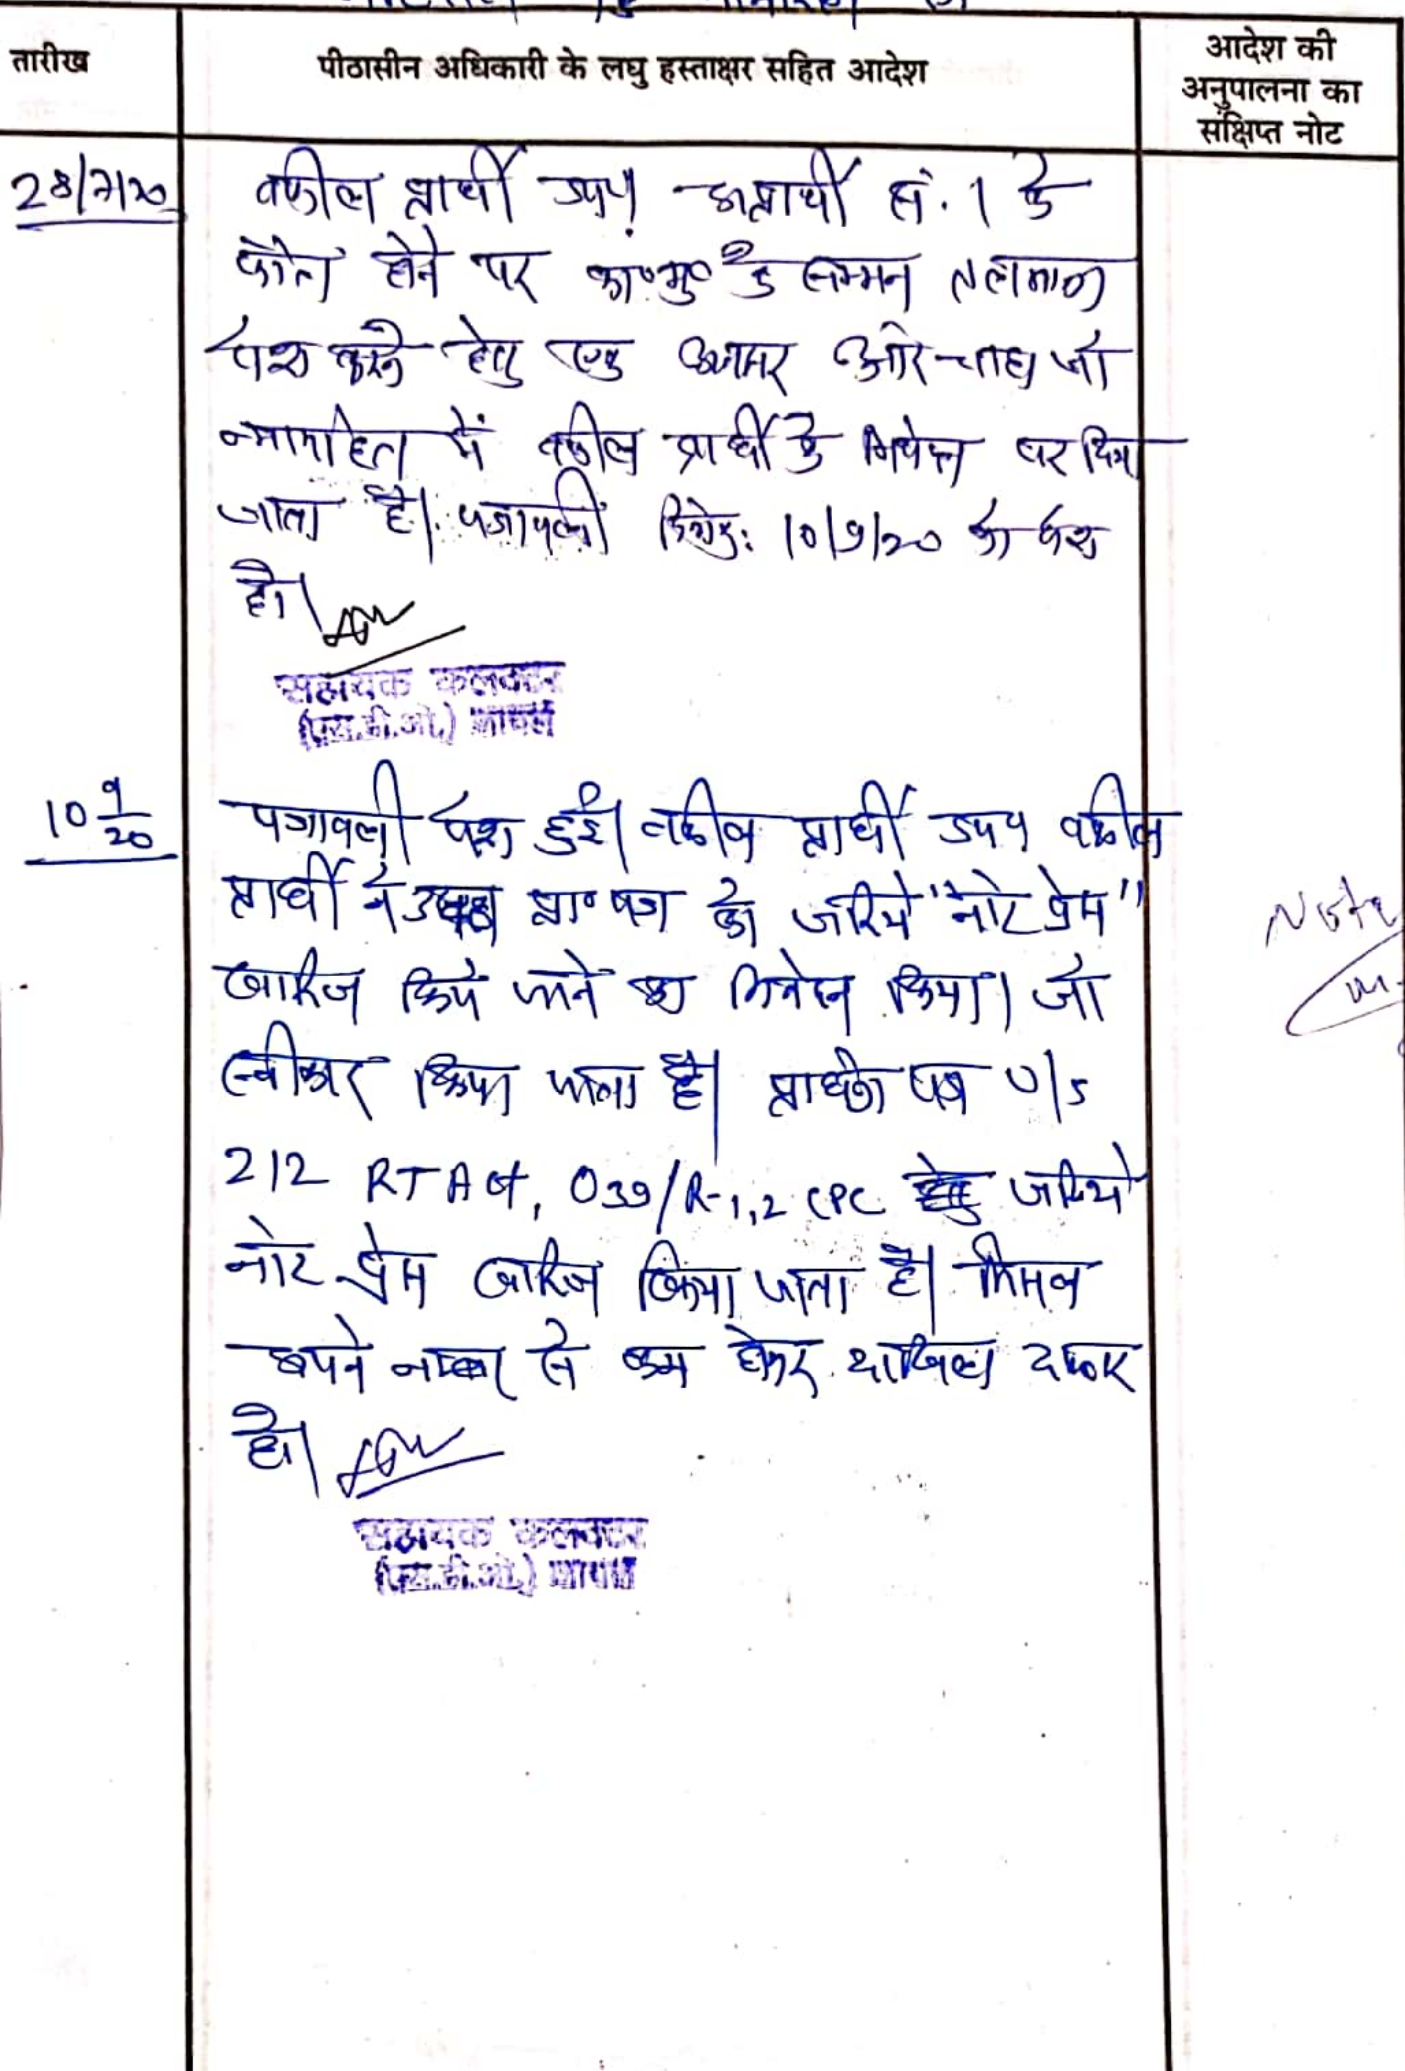 तारीख
पीठासीन अधिकारी के लघु हस्ताक्षर सहित आदेश
आदेश की
अनुपालना का
संक्षिप्त नोट
28/7/20
वकील प्रार्थी उप॰। अप्रार्थी सं. 1 के
फोत होने पर का॰मु॰ के सम्मन तलबाना
पेश करने हेतु एक अवसर और चाहा जो
न्यायहित में वकील प्रार्थी के निवेदन पर दिया
जाता है। पत्रावली दिनांक: 10/9/20 को पेश
हो।
सहायक कलक्टर
(एस.डी.ओ.)
10 9/20
पत्रावली पेश हुई। वकील प्रार्थी उप॰ वकील
प्रार्थी ने प्रा॰ पत्र को जरिये "नोट प्रेस"
खारिज किये जाने का निवेदन किया। जो
स्वीकार किया जाता है। प्रार्थना पत्र U/S
212 RT Act, O39/R-1,2 CPC जरिये
नोट प्रेस खारिज किया जाता है। मिसल
अपने नम्बर से कम होकर दाखिल दफ्तर
हो।
सहायक कलक्टर
(एस.डी.ओ.)
Note